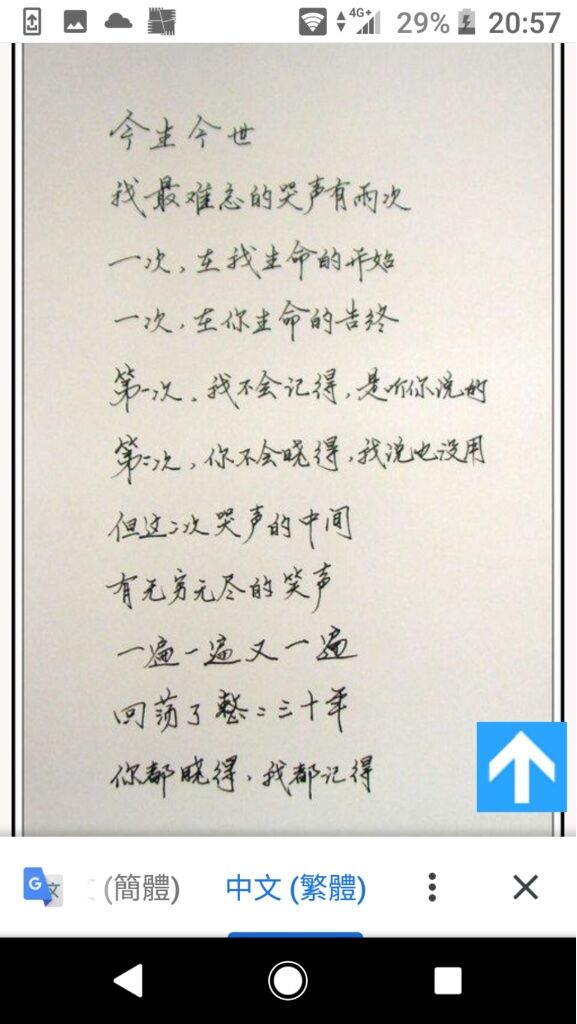 4G+ 29% 20:57
今生今世
我最难忘的哭声有两次
一次,在我生命的开始
一次,在你生命的告终
第一次,我不会记得,是听你说的
第二次,你不会晓得,我说也没用
但这二次哭声的中间
有无穷无尽的笑声
一遍一遍又一遍
回荡了整二三十年
你都晓得,我都记得
G 文 (簡體) 中文 (繁體)